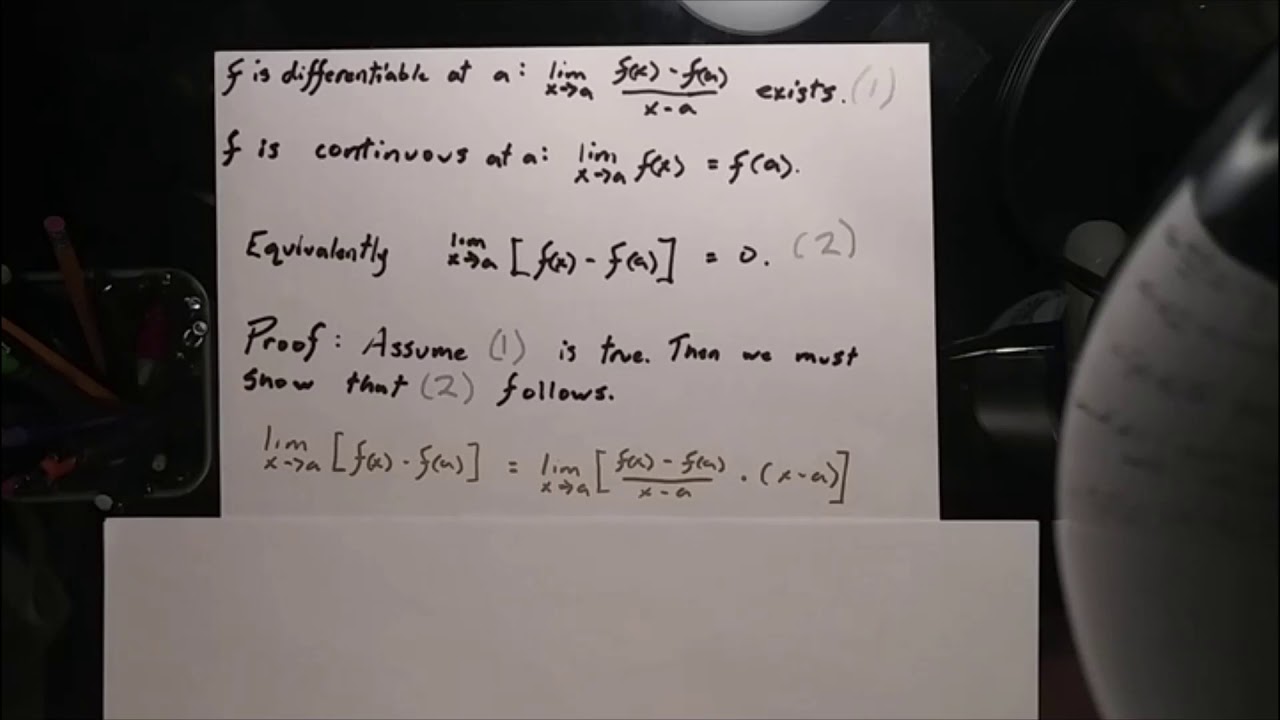 f is differentiable at a: lim x→a f(x) - f(a) / x - a exists. (1)
f is continuous at a: lim x→a f(x) = f(a).
Equivalently lim x→a [f(x) - f(a)] = 0. (2)
Proof: Assume (1) is true. Then we must
show that (2) follows.
lim x→a [f(x) - f(a)] = lim x→a [f(x) - f(a) / x - a · (x - a)]